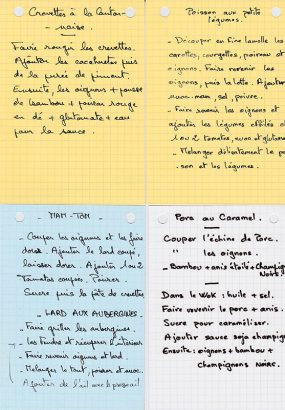 Crevettes à la Canton-
naise.
Faire rougir les crevettes.
Ajouter les cacahuètes puis
de la purée de piment.
Ensuite, les oignons + pousse
de bambou + poivron rouge
en dé + glutamate + eau
pour la sauce.
Poisson aux petits
légumes.
- Découper en fine lamelle les
carottes, courgettes, poireaux et
oignons. Faire revenir les
oignons, puis la lotte. Ajouter
nuoc-mam, sel, poivre.
- Faire revenir les oignons et
ajouter les légumes effilés et
1 ou 2 tomates, nuoc et glutamate
- Mélanger délicatement le pois-
son et les légumes.
- MAM-TOM -
- Couper les oignons et les faire
dorer. Ajouter le lard coupé,
laisser dorer. Ajouter 1 ou 2
Tomates coupées.
Sucre puis la pâte de crevettes
- LARD AUX AUBERGINES -
- Faire griller les aubergines.
- Les fendre et récupérer l'intérieur
- Faire revenir oignons et lard.
- Mélanger le tout, poivre et nuoc.
Ajouter de l'ail avec le presse ail
Porc au Caramel.
Couper l'échine de Porc.
" les oignons.
- Bambou + anis étoilé + Champig
Noirs.
Dans le Wok : huile + sel.
Faire revenir le porc + anis.
Sucre pour caraméliser.
Ajouter sauce soja champig
Ensuite : oignons + bambou +
champignons noirs.